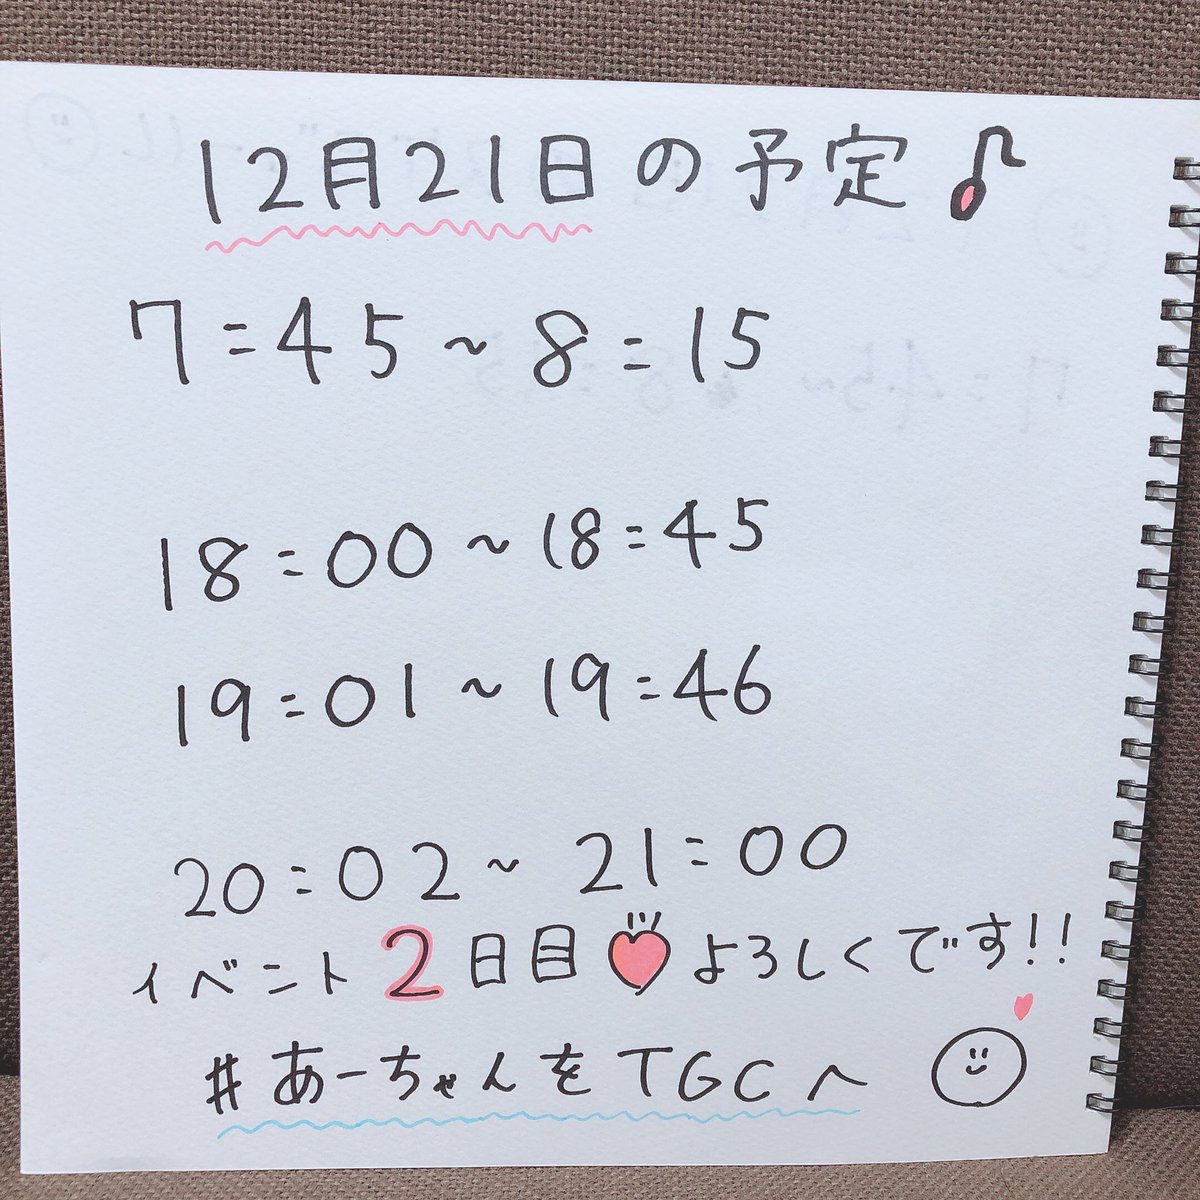 12月21日の予定♪
7:45~8:15
18:00~18:45
19:01~19:46
20:02~21:00
イベント2日目よろしくです!!
#あーちゃんをTGCへ